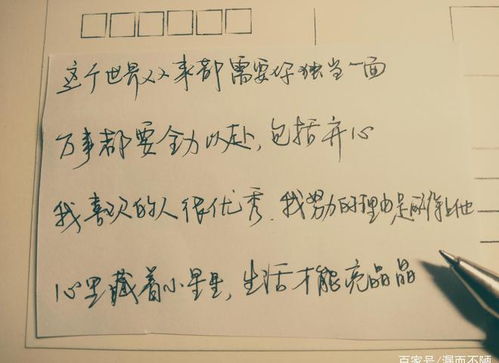 这个世界又又来都需要你独当一面
万事都要全力以赴,包括开心
我喜欢的人很优秀,我努力的理由是配得上他
心里藏着小星星,生活才能亮晶晶
百家号/漏而不陋